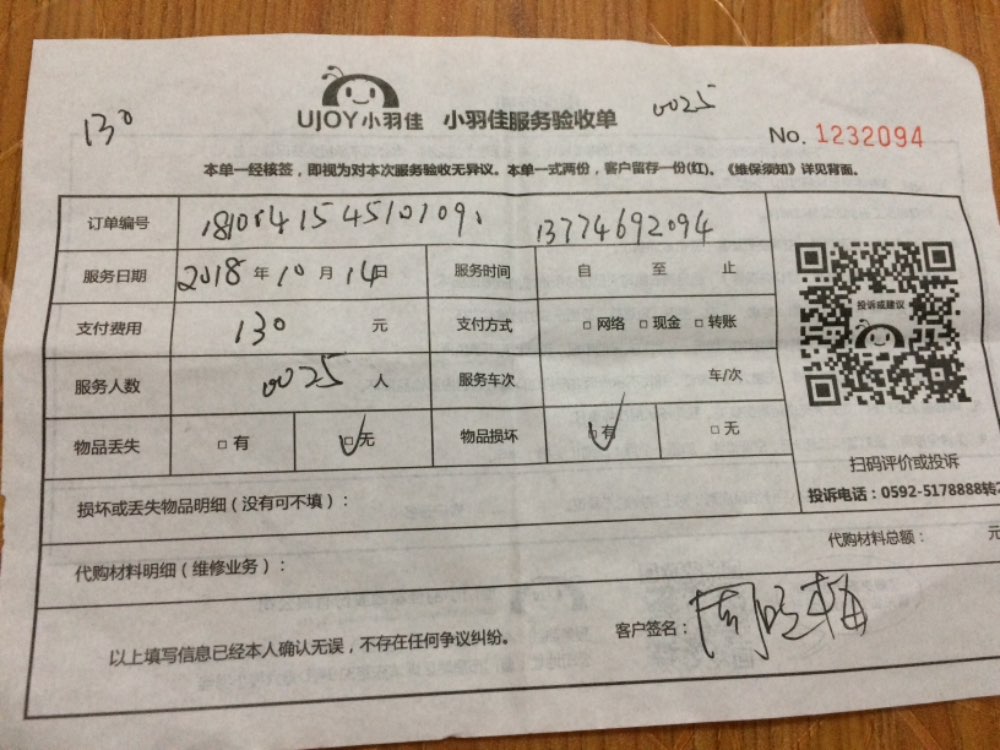 130
UJOY小羽佳 小羽佳服务验收单
0025
No. 1232094
本单一经核签，即视为对本次服务验收无异议。本单一式两份，客户留存一份(红)。《维保须知》详见背面。
订单编号 13774692094
服务日期 2018年10月14日 服务时间 自 至 止
支付费用 130 元 支付方式 □网络 □现金 □转账
服务人数 0025 人 服务车次 车/次
物品丢失 □有 □无 物品损坏 □有 □无
投诉或建议
扫码评价或投诉
投诉电话：0592-5178888转
损坏或丢失物品明细（没有可不填）：
代购材料明细（维修业务）： 代购材料总额： 元
以上填写信息已经本人确认无误，不存在任何争议纠纷。 客户签名：